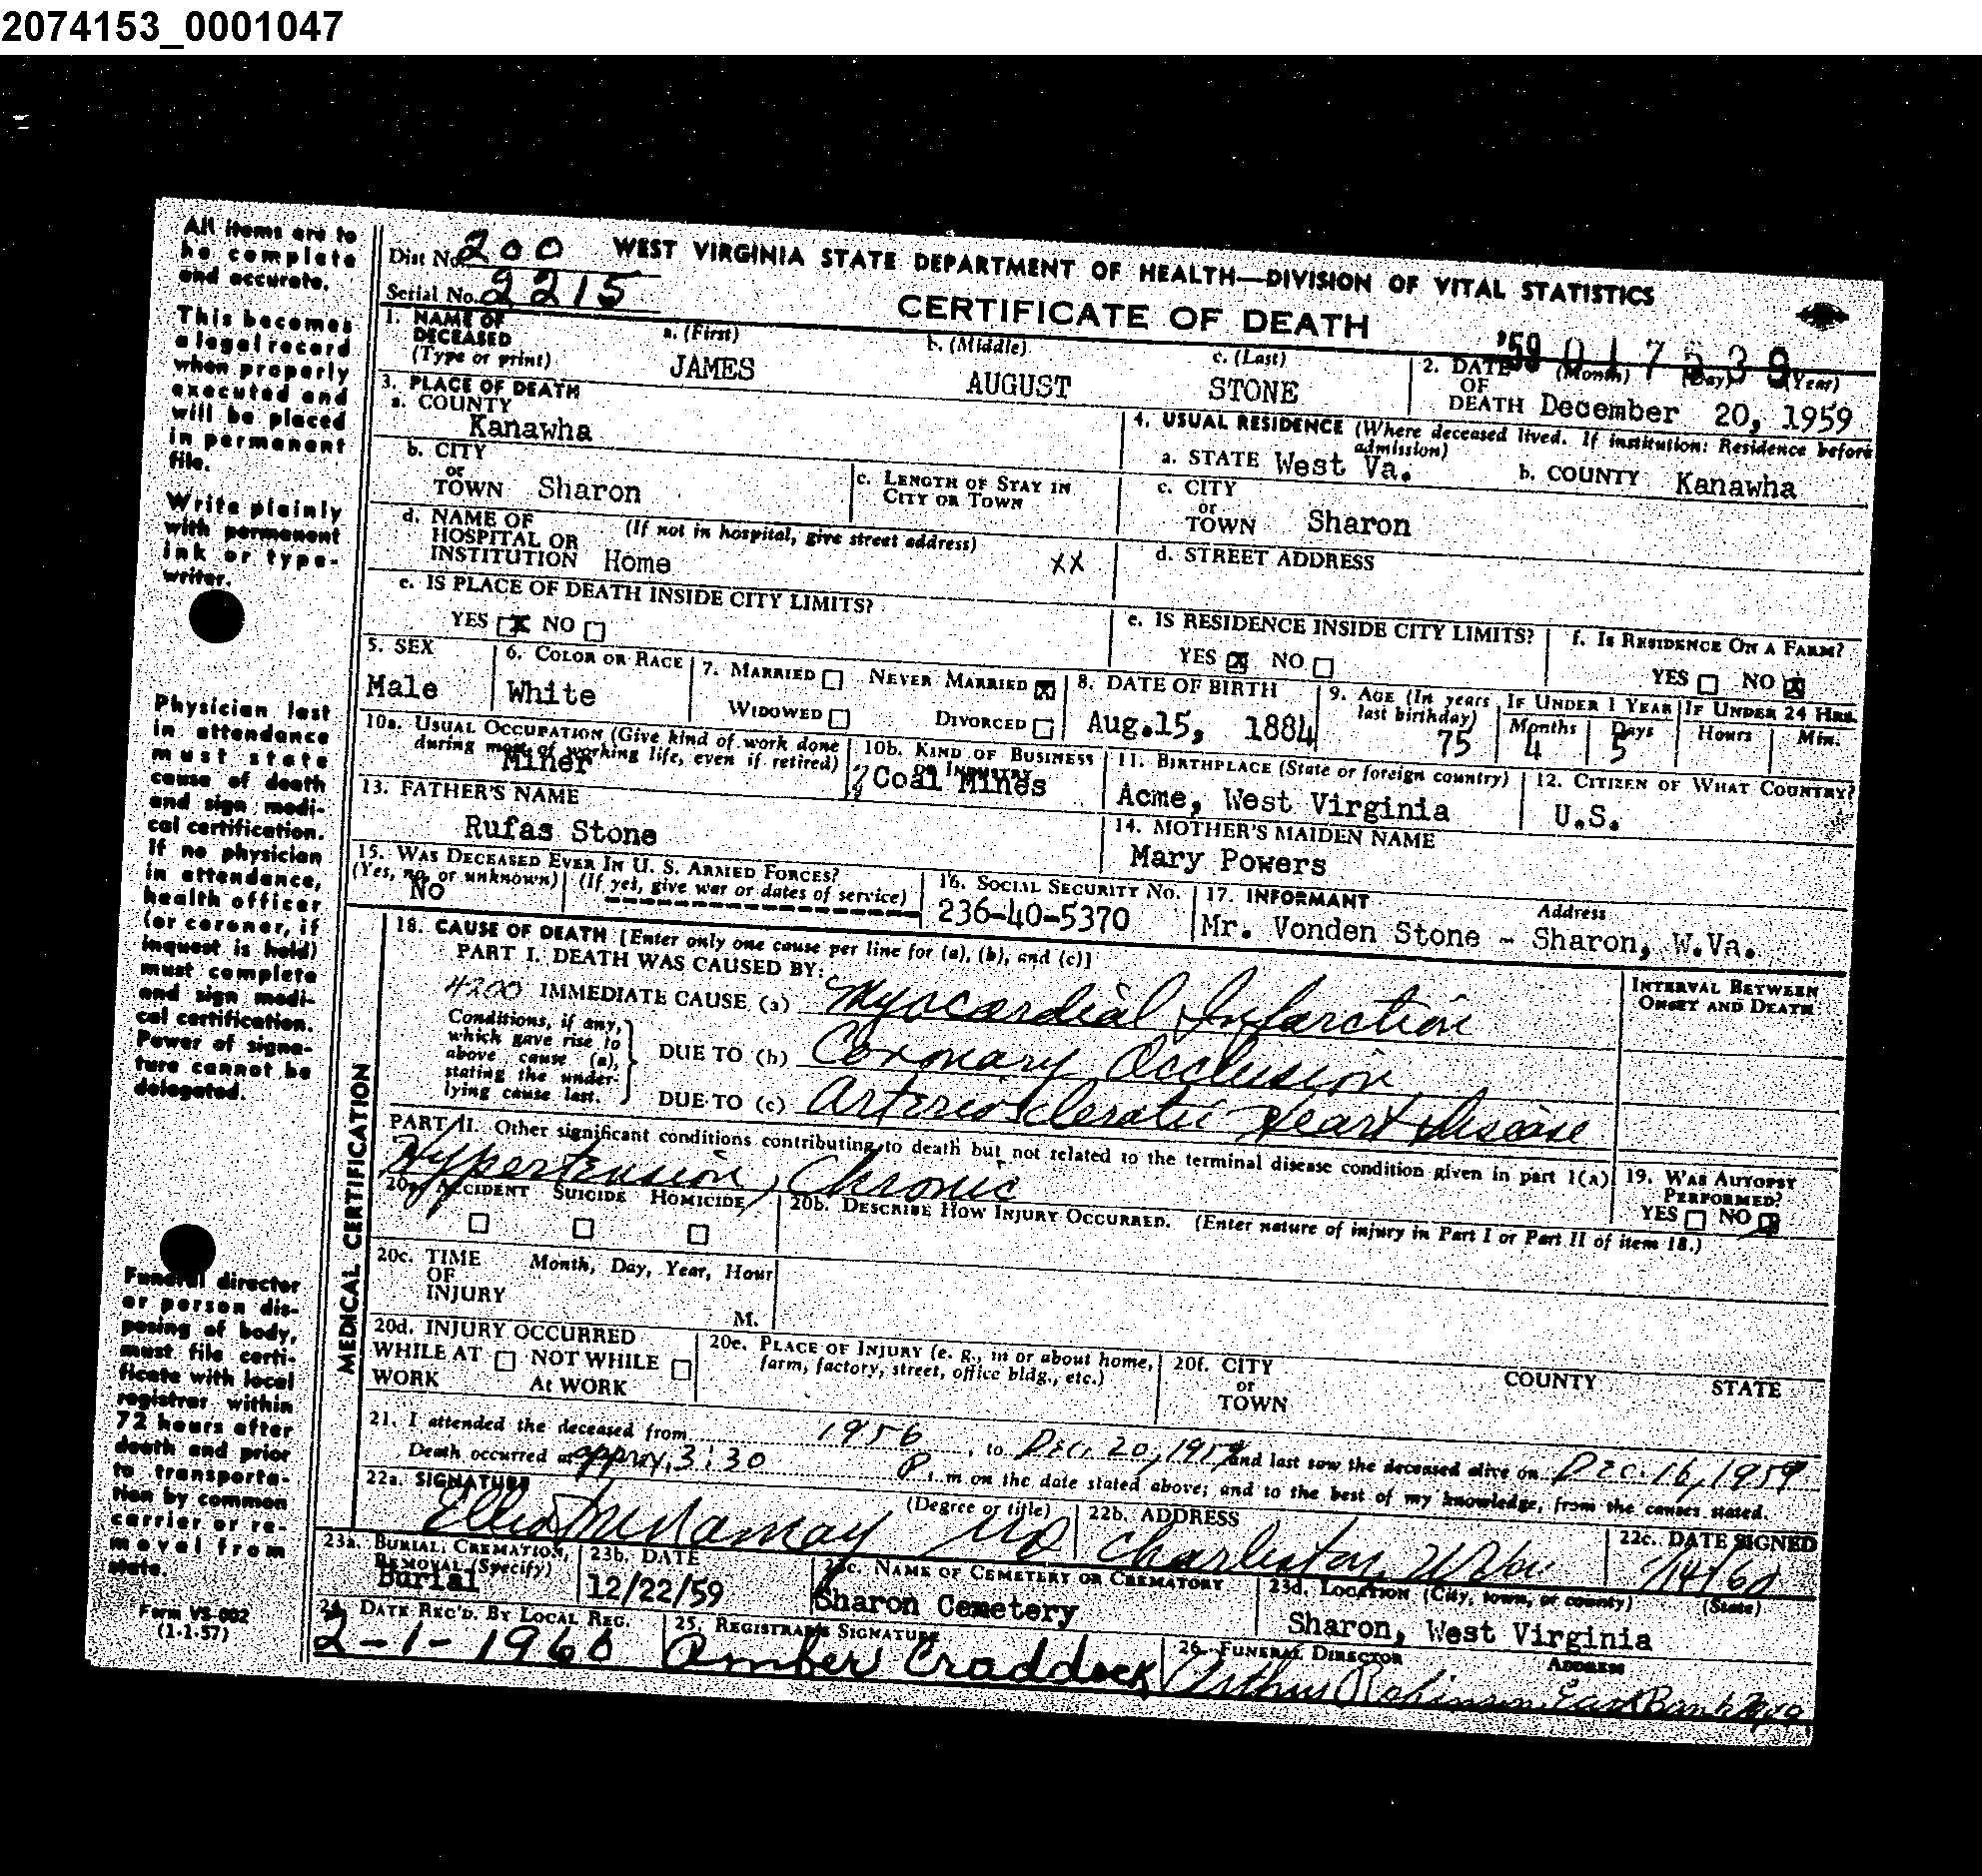 2074153_0001047
All items are to
be complete
and accurate.
This becomes
a legal record
when properly
executed and
will be placed
in permanent
file.
Write plainly
with permanent
ink or type-
writer.
Physician last
in attendance
must state
cause of death
and sign medi-
cal certification.
If no physician
in attendance,
health officer
(or coroner, if
inquest is held)
must complete
and sign medi-
cal certification.
Power of signa-
ture cannot be
delegated.
Funeral director
or person dis-
posing of body,
must file certi-
ficate with local
registrar within
72 hours after
death and prior
to transporta-
tion by common
carrier or re-
moval from
state.
Form VS-002
(1-1-57)
Dist No. 200 WEST VIRGINIA STATE DEPARTMENT OF HEALTH—DIVISION OF VITAL STATISTICS
Serial No. 2215 CERTIFICATE OF DEATH
'59 017539
1. NAME OF DECEASED (Type or print) a. (First) JAMES b. (Middle) AUGUST c. (Last) STONE
2. DATE OF DEATH (Month) (Day) (Year) December 20, 1959
3. PLACE OF DEATH
a. COUNTY Kanawha
4. USUAL RESIDENCE (Where deceased lived. If institution: Residence before admission)
a. STATE West Va. b. COUNTY Kanawha
b. CITY or TOWN Sharon c. LENGTH OF STAY IN CITY OR TOWN
c. CITY or TOWN Sharon
d. NAME OF HOSPITAL OR INSTITUTION (If not in hospital, give street address) Home XX
d. STREET ADDRESS
e. IS PLACE OF DEATH INSIDE CITY LIMITS?
YES X NO
e. IS RESIDENCE INSIDE CITY LIMITS?
YES X NO
f. IS RESIDENCE ON A FARM?
YES NO X
5. SEX Male
6. COLOR OR RACE White
7. MARRIED NEVER MARRIED X
WIDOWED DIVORCED
8. DATE OF BIRTH Aug.15, 1884
9. AGE (In years last birthday) 75
IF UNDER 1 YEAR Months 4 Days 5
IF UNDER 24 HRS. Hours Min.
10a. USUAL OCCUPATION (Give kind of work done during most of working life, even if retired) Miner
10b. KIND OF BUSINESS OR INDUSTRY Coal Mines
11. BIRTHPLACE (State or foreign country) Acme, West Virginia
12. CITIZEN OF WHAT COUNTRY? U.S.
13. FATHER'S NAME Rufas Stone
14. MOTHER'S MAIDEN NAME Mary Powers
15. WAS DECEASED EVER IN U. S. ARMED FORCES?
(Yes, no, or unknown) NO (If yes, give war or dates of service)
16. SOCIAL SECURITY NO. 236-40-5370
17. INFORMANT Address
Mr. Vonden Stone - Sharon, W.Va.
MEDICAL CERTIFICATION
18. CAUSE OF DEATH [Enter only one cause per line for (a), (b), and (c)]
PART I. DEATH WAS CAUSED BY:
INTERVAL BETWEEN ONSET AND DEATH
4200 IMMEDIATE CAUSE (a) Myocardial Infarction
Conditions, if any, which gave rise to above cause (a), stating the under-lying cause last.
DUE TO (b) Coronary Occlusion
DUE TO (c) Arteriosclerotic Heart Disease
PART II. Other significant conditions contributing to death but not related to the terminal disease condition given in part I(a)
Hypertension, Chronic
19. WAS AUTOPSY PERFORMED?
YES NO
20a. ACCIDENT SUICIDE HOMICIDE
20b. DESCRIBE HOW INJURY OCCURRED. (Enter nature of injury in Part I or Part II of item 18.)
20c. TIME OF INJURY Month, Day, Year, Hour
M.
20d. INJURY OCCURRED
WHILE AT WORK NOT WHILE At WORK
20e. PLACE OF INJURY (e. g., in or about home, farm, factory, street, office bldg., etc.)
20f. CITY or TOWN COUNTY STATE
21. I attended the deceased from 1956, to Dec. 20, 1959 and last saw the deceased alive on Dec. 16, 1959
Death occurred at approx. 3:30 P.m on the date stated above; and to the best of my knowledge, from the causes stated.
22a. SIGNATURE (Degree or title) MD
22b. ADDRESS Charleston, W Va
22c. DATE SIGNED 1/14/60
23a. BURIAL, CREMATION, REMOVAL (Specify) Burial
23b. DATE 12/22/59
23c. NAME OF CEMETERY OR CREMATORY Sharon Cemetery
23d. LOCATION (City, town, or county) (State)
Sharon, West Virginia
24. DATE REC'D. BY LOCAL REG. 2-1-1960
25. REGISTRAR'S SIGNATURE Amber Craddock
26. FUNERAL DIRECTOR ADDRESS
Arthur Robinson, East Bank